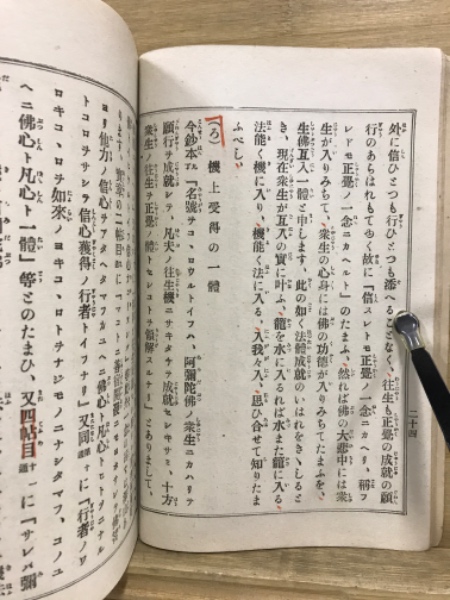 外に信ひとつも行ひとつも添へることなく、往生も正覺の成就の願
行のあらはれもてゆく故に『信スレトモ正覺ノ一念ニカヘリ、稱フ
レドモ正覺ノ一念ニカヘルト』のたまふ、然れば佛の大悲中には衆
生が入りみちて、衆生の心身には佛の功德が入りみちてたまふを、
生佛互入一體と申します、此の如く法體成就のいはれをきゝしると
き、現在衆生互入の實に叶ふ、籠を水に入るれば水また籠に入る、
法能く機に入り、機能く法に入る、入我々入、思ひ合せて知りたま
ふべし、
(ろ) 機上受得の一體
今鈔本に『名號ヲコ、ロウルトイフハ、阿彌陀佛ノ衆生ニカハリテ
願行ヲ成就シテ、凡夫ノ往生機ニサキタチテ成就セシキサミ、十方
衆生ノ往生ヲ正覺ノ體トセシコトヲ領解スルナリ』とありまして、
二十四
ります、
ヨリ他力ノ信心ヲアタヘタマフユヘニ佛心ト凡心トヒトツニナル
トコロヲサシテ信心獲得ノ行者トイフナリ』又同第十通に『行者ノワ
ロキコ、ロヲ如來ノヨキコ、ロトヲナジモノニナシタマフ、コノユ
ヘニ佛心ト凡心ト一體』等とのたまひ、又四帖目十一通に『サレバ彌